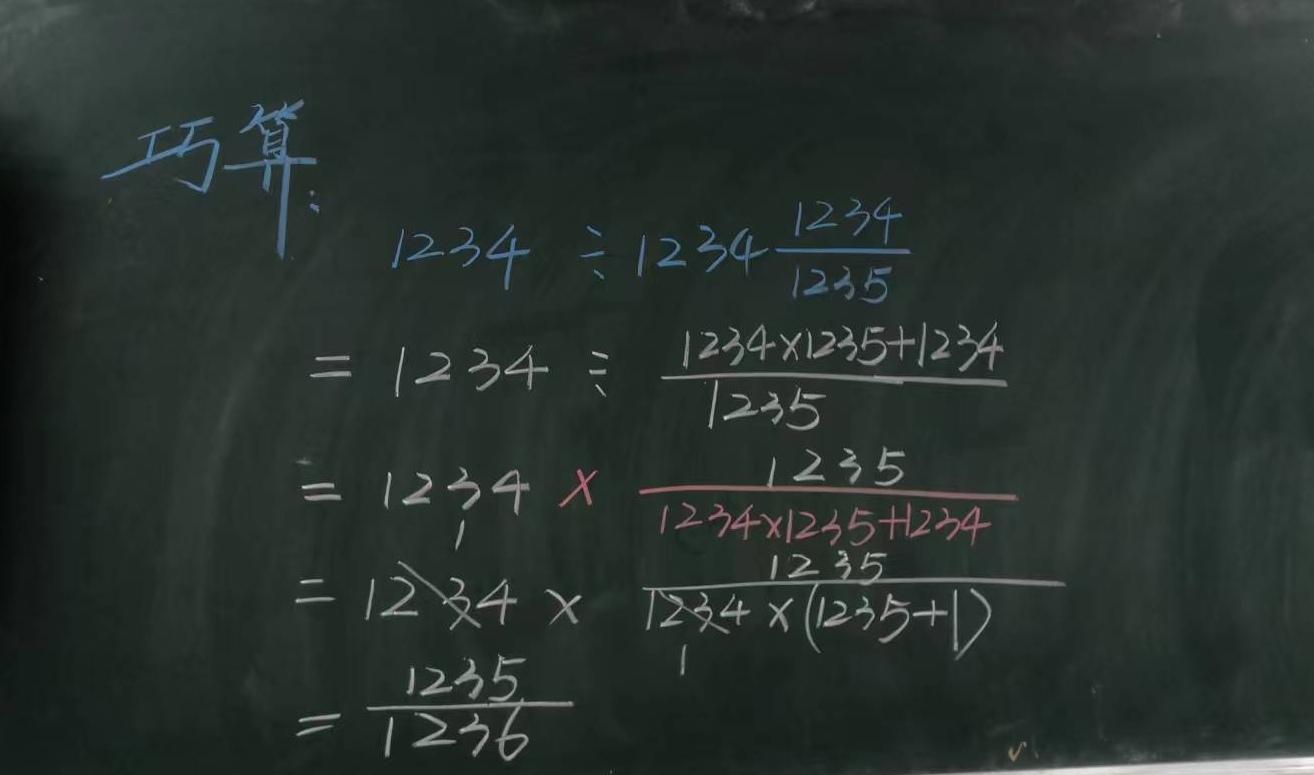 巧算:
1234 ÷ 1234 1234/1235
= 1234 ÷ (1234×1235+1234)/1235
= 1234 × 1235/(1234×1235+1234)
1
= 1234 × 1235/(1234×(1235+1))
1
= 1235/1236